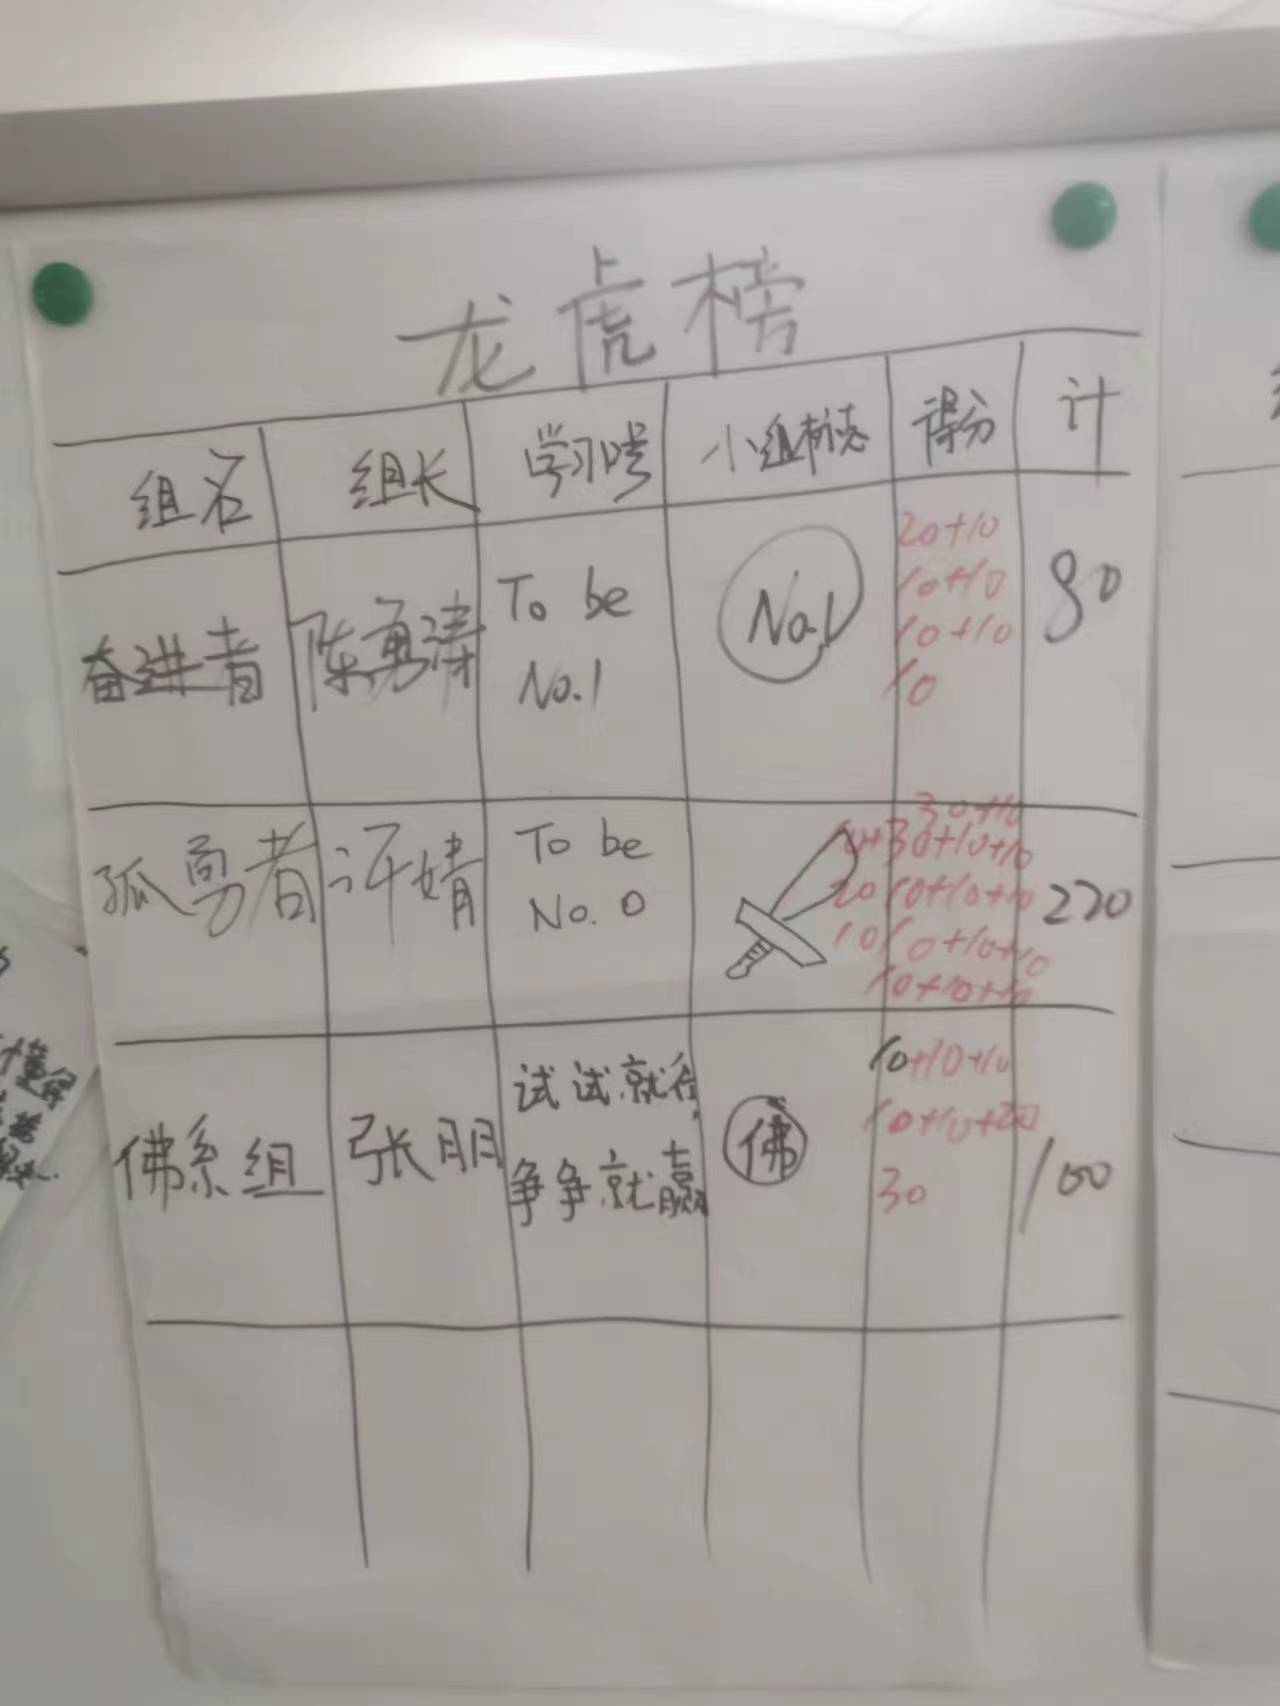 龙虎榜
组名 组长 学习口号 小组标志 得分 计
奋进者 陈勇涛 To be No.1 No.1 80
20+10
10+10
10+10
10
孤勇者 许婧 To be No.0 220
30+10
10+30+10+10
20 10+10+10
10 10+10+10
10+10+10
佛系组 张朋 试试就行, 争争就赢 佛 100
10+10+10
10+10+20
30